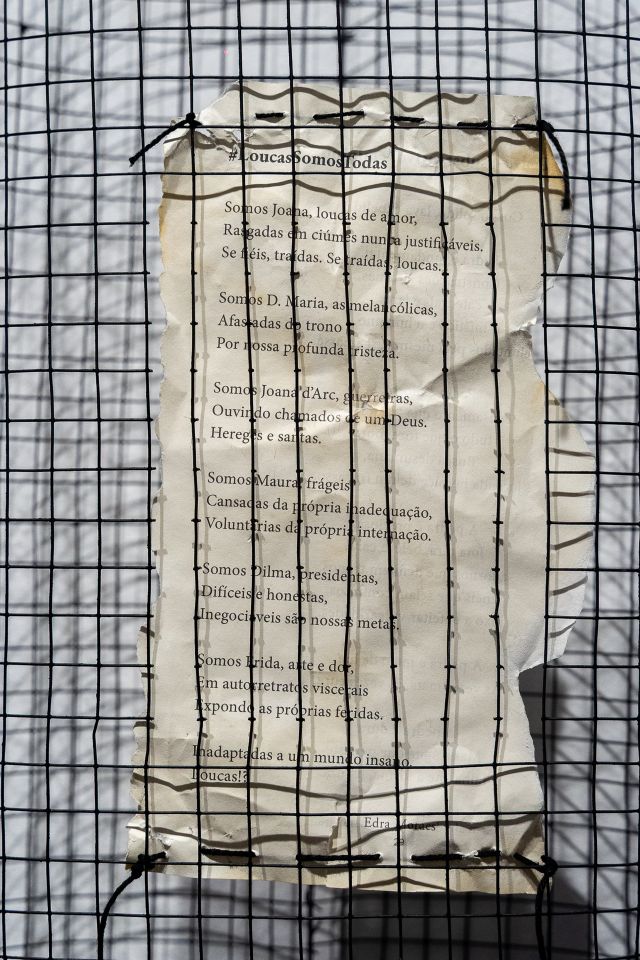 #LoucasSomosTodas
Somos Joana, loucas de amor,
Rasgadas em ciúmes nunca justificáveis.
Se fiéis, traídas. Se traídas, loucas.
Somos D. Maria, as melancólicas,
Afastadas do trono
Por nossa profunda tristeza.
Somos Joana d'Arc, guerreiras,
Ouvindo chamados de um Deus.
Hereges e santas.
Somos Maura, frágeis
Cansadas da própria inadequação,
Voluntárias da própria internação.
Somos Dilma, presidentas,
Difíceis e honestas,
Inegociáveis são nossas metas.
Somos Frida, arte e dor,
Em autorretratos viscerais
Expondo as próprias feridas.
Inadaptadas a um mundo insano.
Loucas!?
Edra Moraes